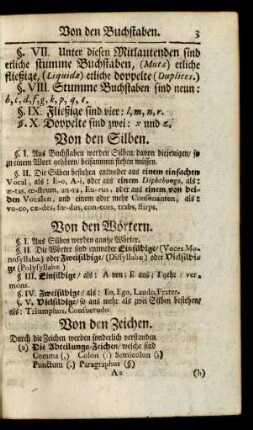 Von den Buchstaben. 3
§. VII. Unter diesen Mitlautenden sind
etliche stumme Buchstaben, (Mutæ) etliche
fließige, (Liquidæ) etliche doppelte (Duplices.)
§. VIII. Stumme Buchstaben sind neun:
b, c, d, f, g, k, p, q, t.
§. IX. Fließige sind vier: l, m, n, r.
§. X. Doppelte sind zwei: x und z.
Von den Silben.
§. I. Aus Buchstaben werden Silben, davon diejenigen, so
zu einem Wort gehören, beisammen stehen müssen.
§. II. Die Silben bestehen entweder aus einem einfachen
Vocal, als: E-o, A-i, oder aus einem Diphthongo, als:
æ-tas, œ-strum, au-ra, Eu-rus, oder aus einem von bei-
den Vocalen, und einem oder mehr Consonanten, als:
vo-co, cæ-des, fœ-dus, con-tero, trabs, stirps.
Von den Wörtern.
§. I. Aus Silben werden gantze Wörter.
§. II. Die Wörter sind entweder Einsilbige, (Voces Mo-
nosyllabæ) oder Zweisilbige, (Disyllabæ) oder Vielsilbi-
ge (Polysyllabæ)
§. III. Einsilbige, als: A von; E aus; I gehe, ver,
mons.
§. IV. Zweisilbige, als: Eo, Ego, Laudo, Frater.
§. V. Vielsilbige, so aus mehr als zwei Silben bestehen,
als: Triumphus, Consuetudo.
Von den Zeichen.
Durch die Zeichen werden sonderlich verstanden
(a) Die Abteilungs-Zeichen, welche sind
Comma (,) Colon (:) Semicolon (;)
Punctum (.) Paragraphus (§)
Aa (b)